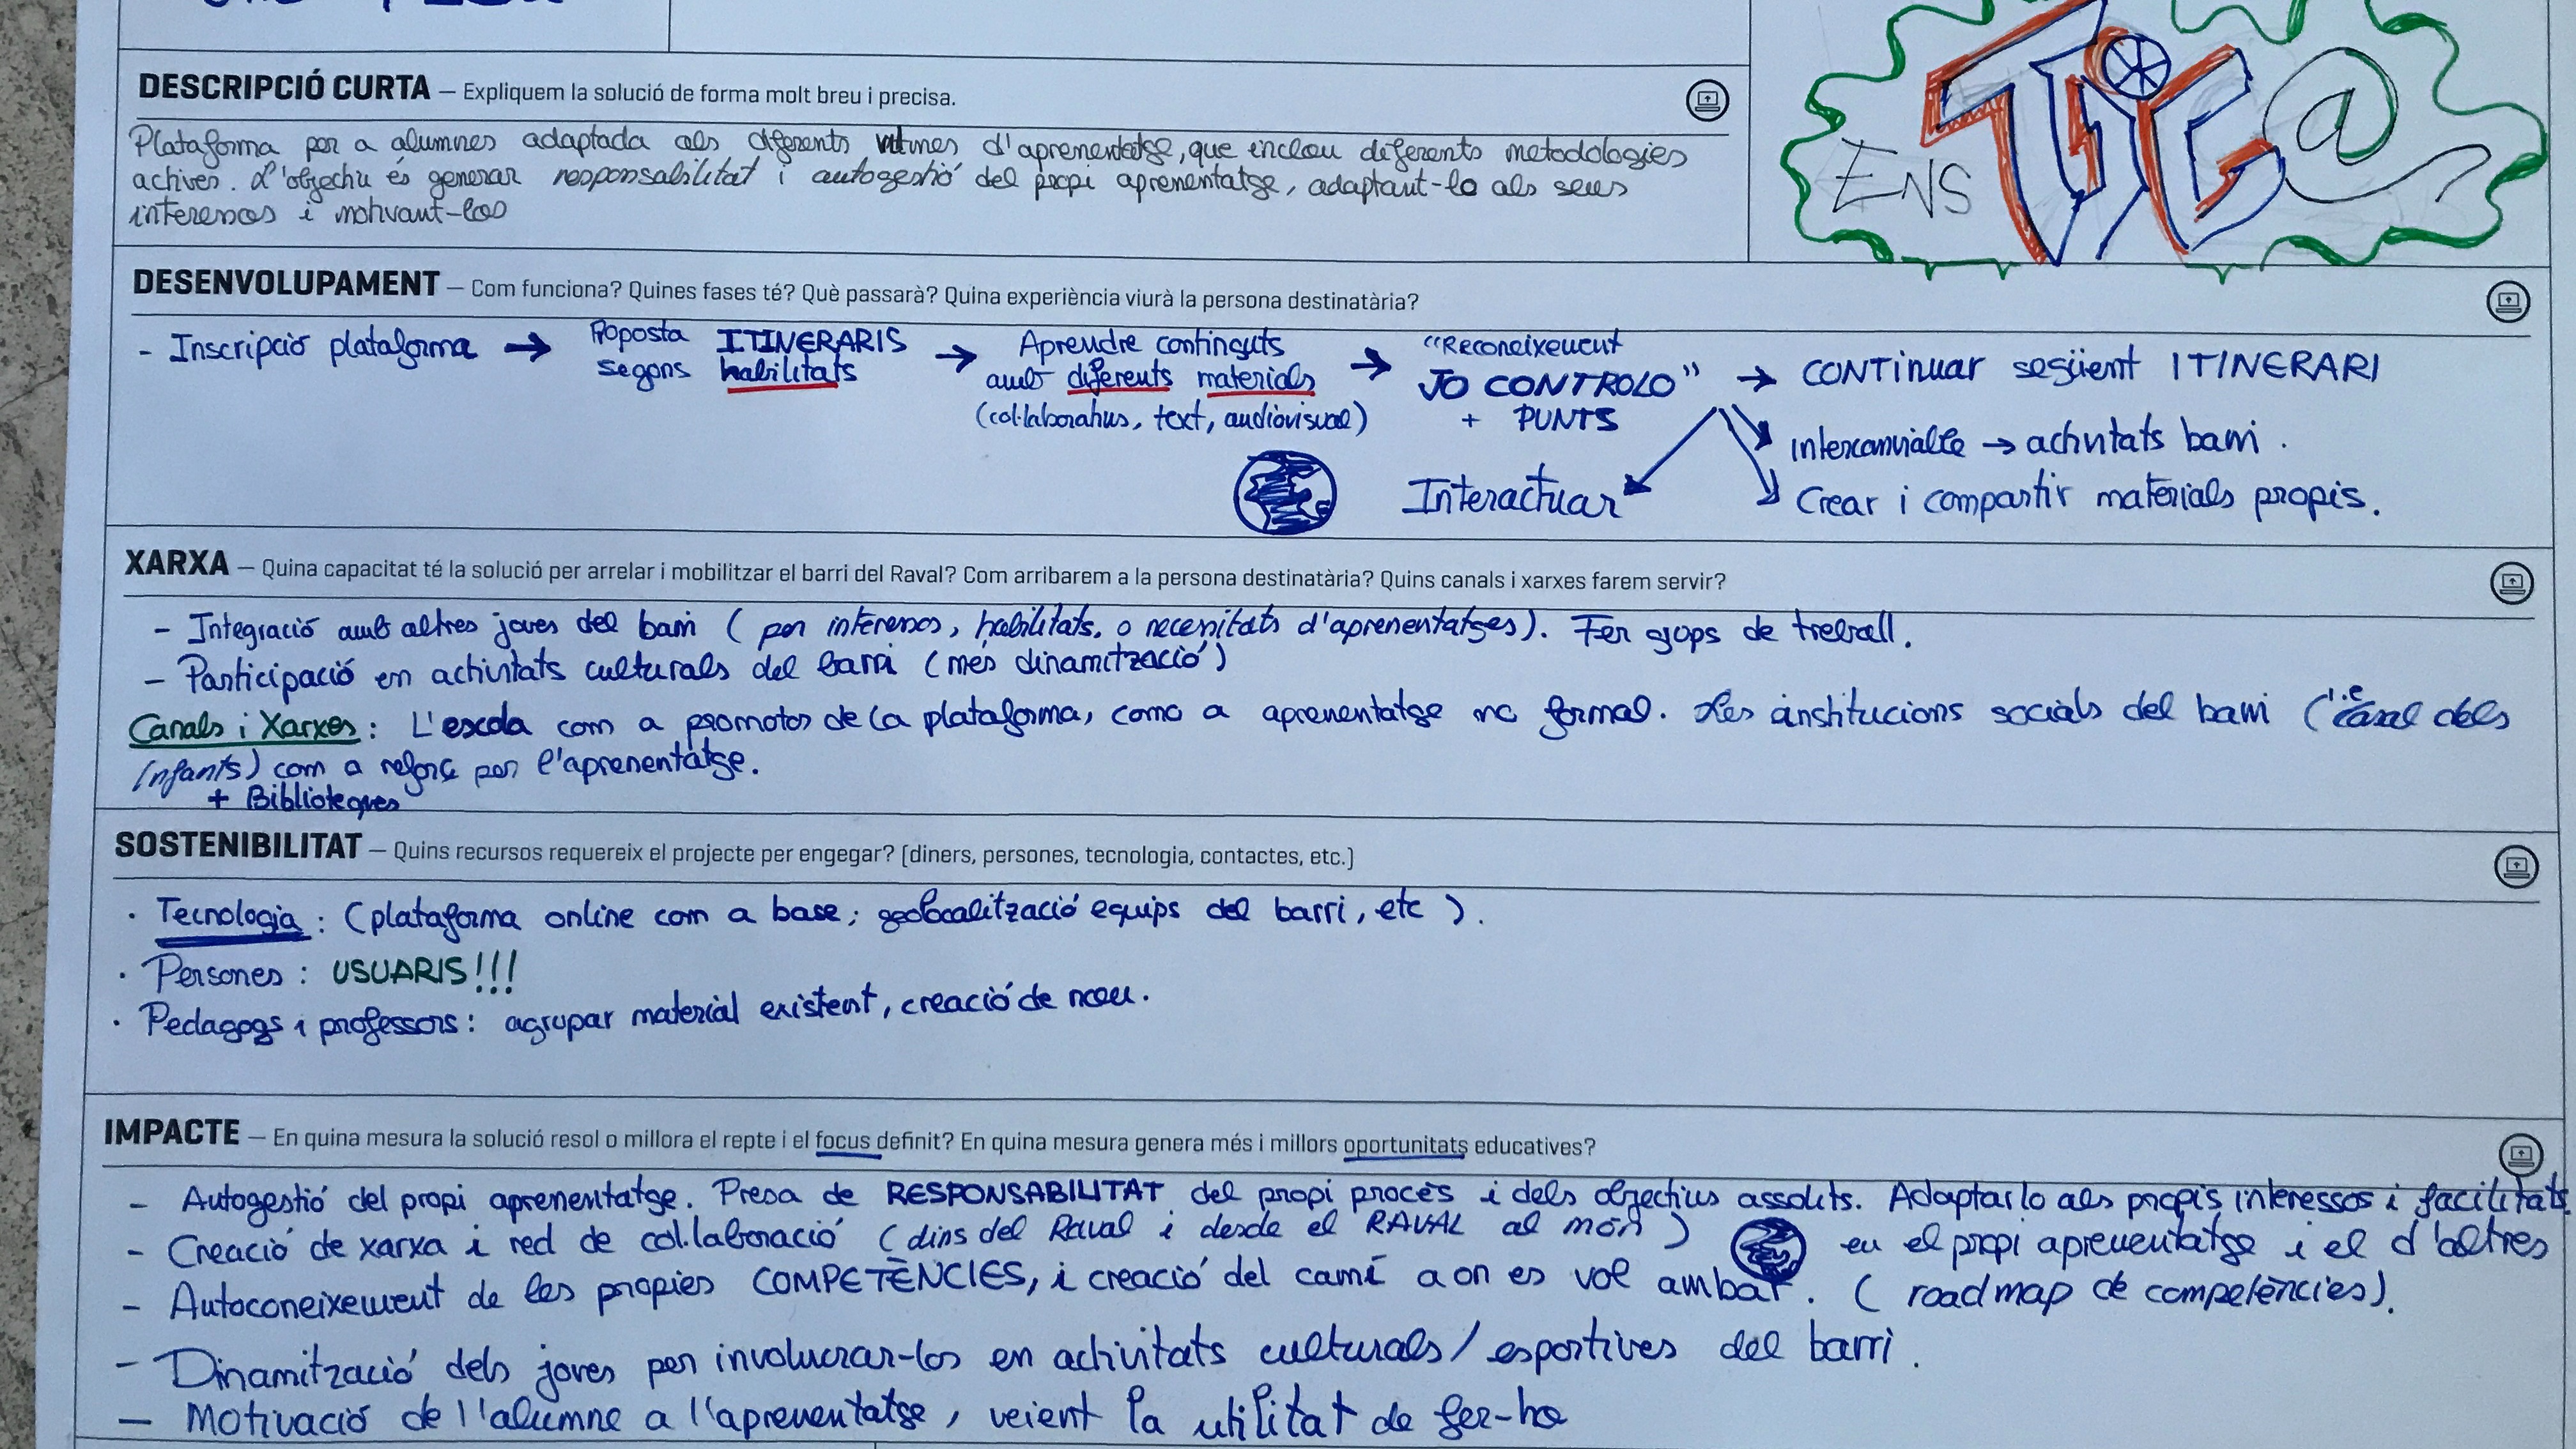 DESCRIPCIÓ CURTA — Expliquem la solució de forma molt breu i precisa.
Plataforma per a alumnes adaptada als diferents ritmes d'aprenentatge, que inclou diferents metodologies
actives. L'objectiu és generar responsabilitat i autogestió del propi aprenentatge, adaptant-lo als seus
interessos i motivant-los
ENS TIC@
DESENVOLUPAMENT — Com funciona? Quines fases té? Què passarà? Quina experiència viurà la persona destinatària?
- Inscripció plataforma → Proposta ITINERARIS segons habilitats → Aprendre continguts amb diferents materials (col·laboratius, text, audiovisual) → "Reconeixement JO CONTROLO" + PUNTS → CONTinuar següent ITINERARI
intercanviable → activitats barri.
Interactuar
Crear i compartir materials propis.
XARXA — Quina capacitat té la solució per arrelar i mobilitzar el barri del Raval? Com arribarem a la persona destinatària? Quins canals i xarxes farem servir?
- Integració amb altres joves del barri (per interessos, habilitats, o necesitats d'aprenentatges). Fer grups de treball.
- Participació en activitats culturals del barri (més dinamització)
Canals i Xarxes: L'escola com a promotor de la plataforma, como a aprenentatge no formal. Les institucions socials del barri (i.e casal dels
Infants) com a reforç per l'aprenentatge.
+ Biblioteques
SOSTENIBILITAT — Quins recursos requereix el projecte per engegar? (diners, persones, tecnologia, contactes, etc.)
· Tecnologia: (plataforma online com a base; geolocalització equips del barri, etc).
· Persones: USUARIS!!!
· Pedagogs i professors: agrupar material existent, creació de nou.
IMPACTE — En quina mesura la solució resol o millora el repte i el focus definit? En quina mesura genera més i millors oportunitats educatives?
- Autogestió del propi aprenentatge. Presa de RESPONSABILITAT del propi procès i dels objectius assolits. Adaptarlo als propis interessos i facilitats
- Creació de xarxa i red de col·laboració (dins del Raval i desde el RAVAL al món) en el propi aprenentatge i el d'altres
- Autoconeixement de les propies COMPETÈNCIES, i creació del camí a on es vol ambar. (roadmap de competències).
- Dinamització dels joves per involucrar-los en activitats culturals/esportives del barri.
- Motivació de l'alumne a l'aprenentatge, veient la utilitat de fer-ho